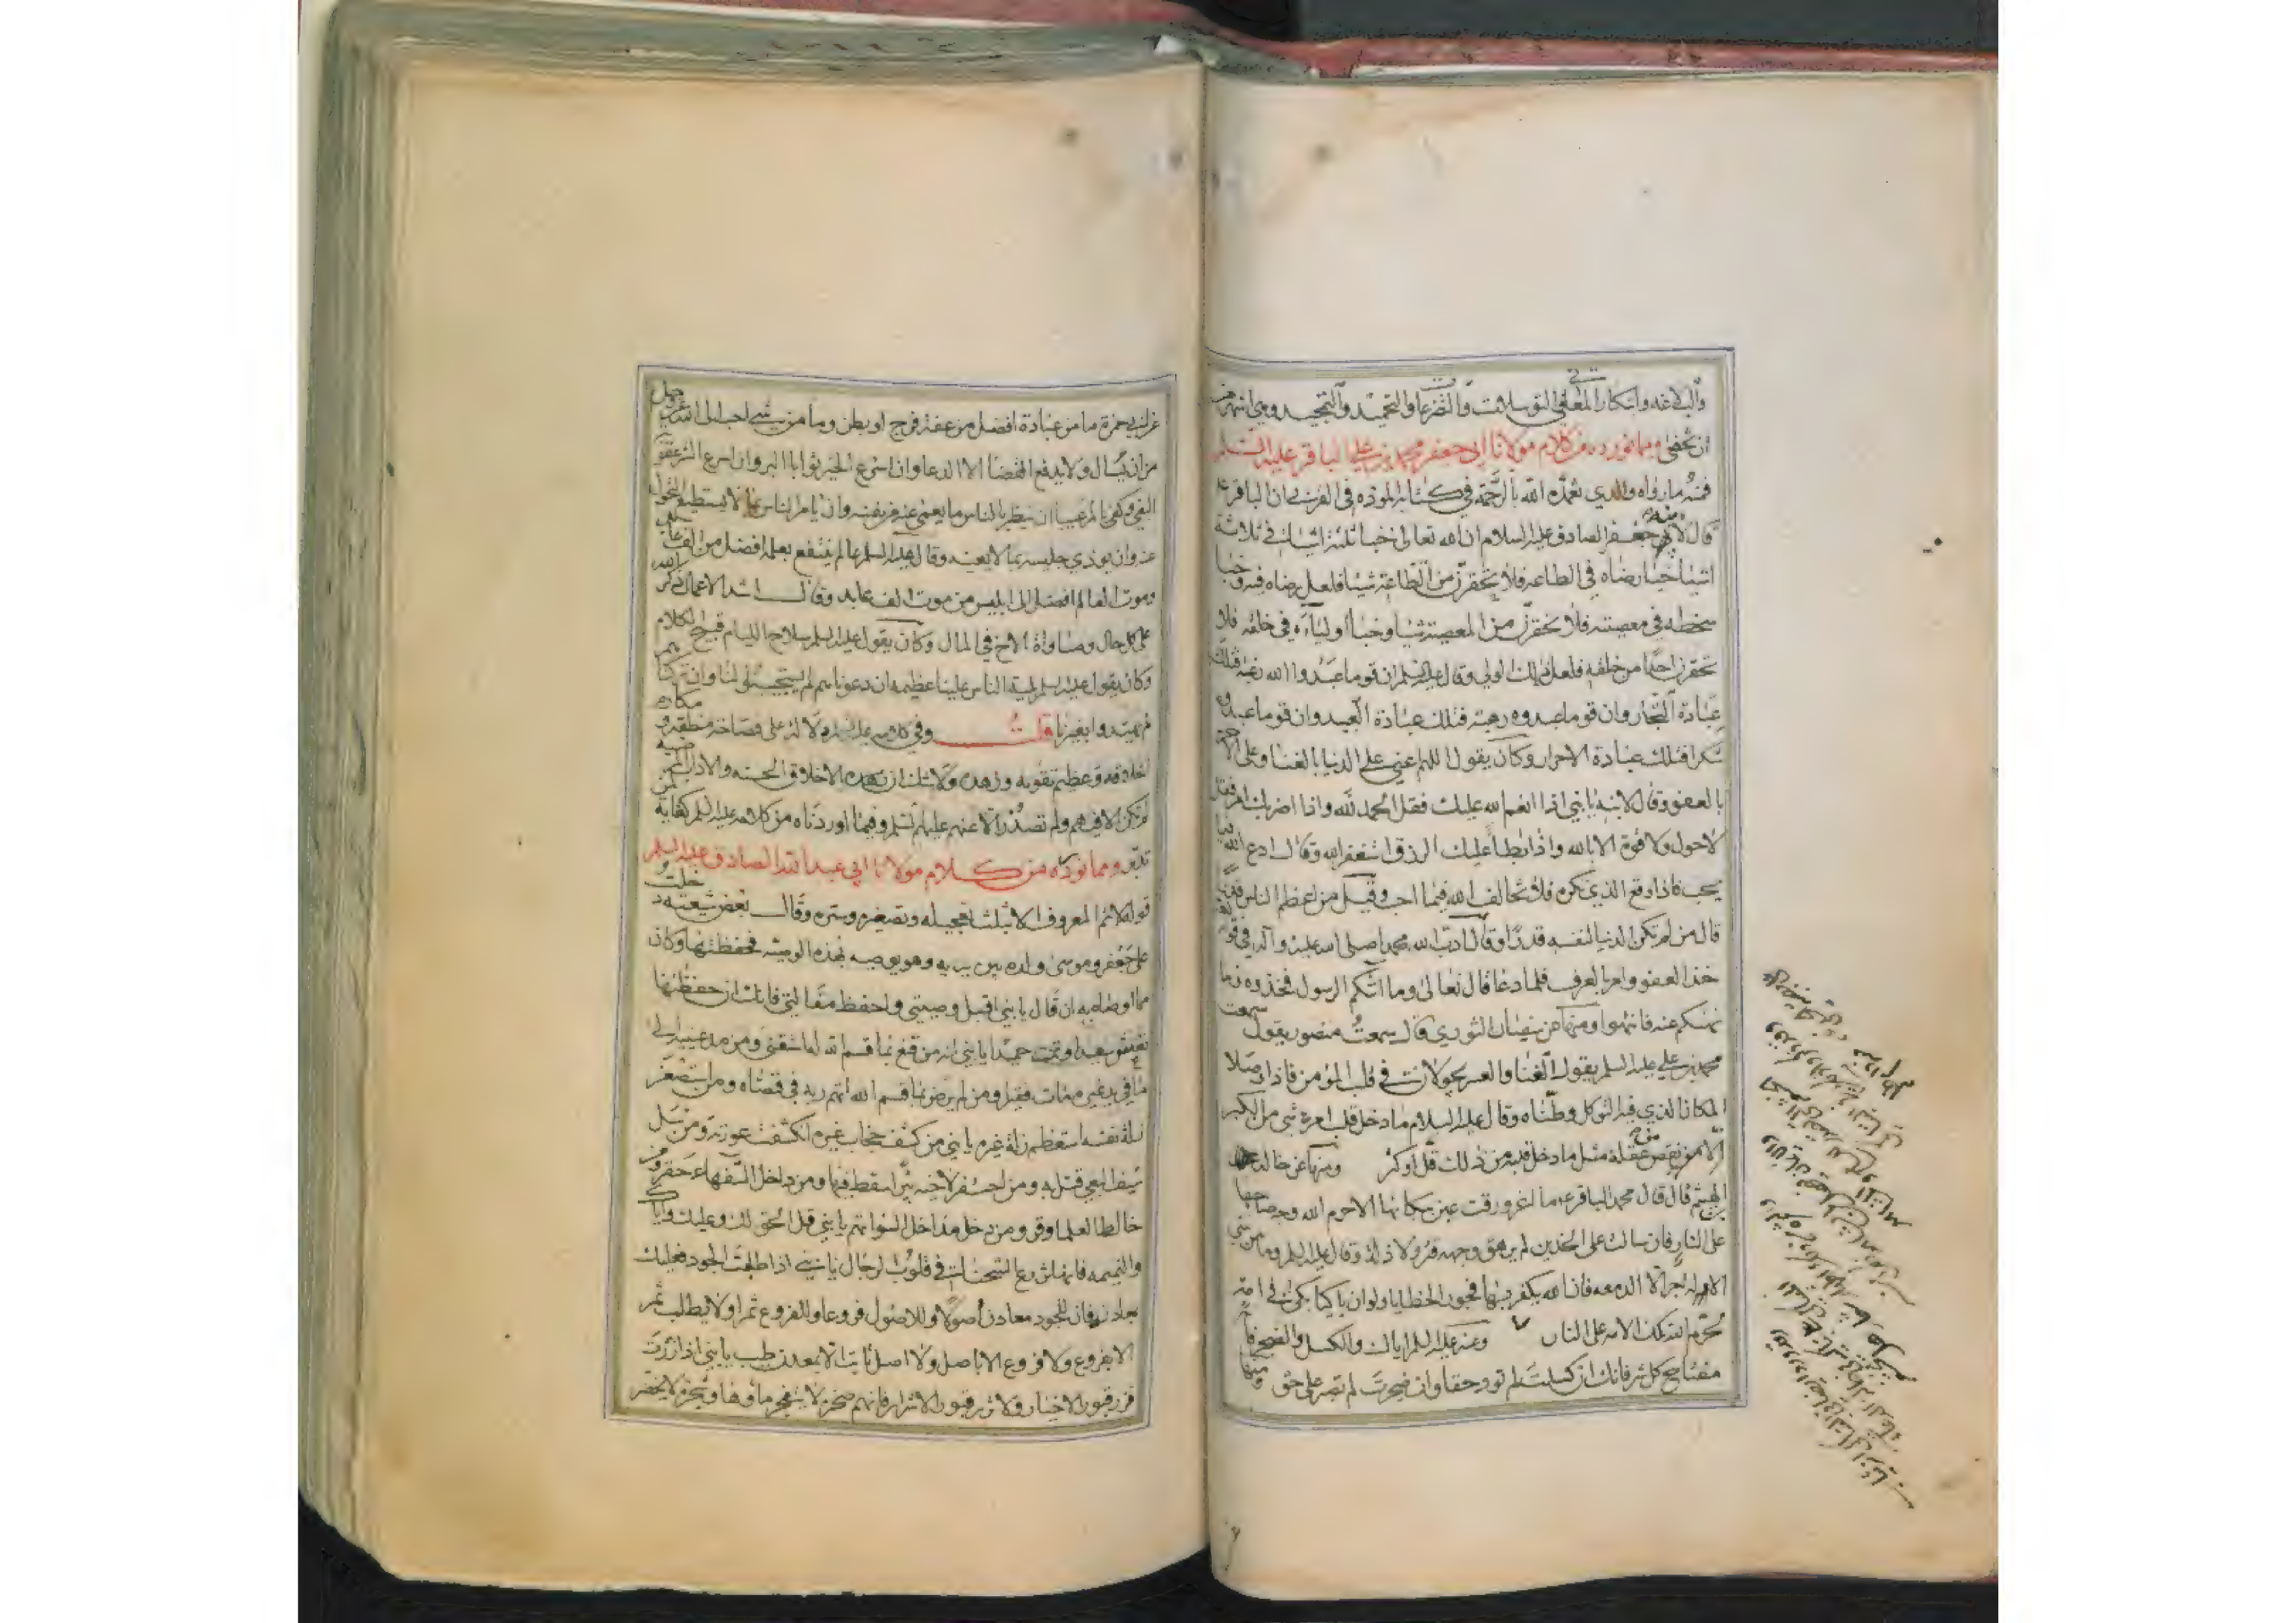 والبلاغه وابتكار المعاني في التوسلات والتضرعات والتحميد والتمجيد وهي اشهر من
ان تخفى ومما نورده من كلام مولانا ابي جعفر محمد بن علي الباقر عليه السلم
فمنه ما رواه والدي تغمده الله بالرحمة في كتابه ان الباقر
قال لابنه جعفر الصادق عليه السلام ان الله تعالى خبا ثلثة اشياء في ثلاثة
اشيا خبا رضاه في الطاعه فلا تحقرن من الطاعة شيئا فلعل رضاه فيه وخبا
سخطه في معصيته فلا تحقرن من المعصية شيئا وخبا اولياءه في خلقه فلا
تحقرن احدا من خلقه فلعله ذلك الولي وقال عليه السلم ان قوما عبدوا الله رغبة فتلك
عبادة التجار وان قوما عبدوه رهبة فتلك عبادة العبيد وان قوما عبدوه
شكرا فتلك عبادة الاحرار وكان يقول اللهم اعني على الدنيا بالغنا وعلى الاخرة
بالعفو وقال لابنه يا بني اذا انعم الله عليك فقل الحمد لله واذا احزبك امر فقل
لا حول ولا قوة الا بالله واذا ابطا عليك الرزق استغفر الله وقال ادع الله
يجب فاذا وقع الذي تكره فلا تخالف الله فيما احب وقيل من اعظم الناس قدرا
قال من لم تكن الدنيا لنفسه قدرا وقال ادب الله محمدا صلى الله عليه وآله في قوله
خذ العفو وامر بالعرف فلما دعا قال تعالى وما اتكم الرسول فخذوه وما
نهيكم عنه فانتهوا ومنها عن سفيان الثوري قال سمعت منصور يقول سمعت
محمد بن علي عليه السلم يقول الغنا والعز يجولان في قلب المؤمن فاذا وصلا
المكان الذي فيه التوكل وطناه وقال عليه السلام ما دخل قلب امرء شي من الكبر
الا نقص من عقله مثل ما دخل قلبه من ذلك قل او كثر ومنها عن خالد بن
الهيثم قال قال محمد الباقر ما اغرورقت عين بمائها الا حرم الله وجه صاحبها
على النار فان سالت على الخدين لم يرهق وجهه قتر ولا ذلة وقال عليه السلم وما من شي
الا وله جزا الا الدمعه فان الله يكفر بها بحور الخطايا ولو ان باكيا بكى في امة
لحرم الله تلك الامه على النار وعنه عليه السلم اياك والكسل والضجر فانهما
مفتاح كل شر فانك ان كسلت لم تود حقا وان ضجرت لم تصبر على حق ومنها
عن ابي حمزة ما من عبادة افضل من عفة فرج او بطن وما من شي احب الى الله عز وجل
من ان يسال ولا يدفع القضا الا الدعا وان اسرع الخير ثوابا البر وان اسرع الشر عقوبة
البغي وكفى بالمرء عيبا ان ينظر بالناس ما يعمى عنه من نفسه وان يامر الناس بما لا يستطيع التحول
عنه وان يوذي جليسه بما لا يعنيه وقال عليه السلم عالم ينتفع بعلمه افضل من الف عابد
وموت العالم افضل الى ابليس من موت الف عابد وقال اشد الاعمال ذكر الله
على كل حال ومساواة الاخ في المال وكان يقول عليه السلم سلاح اللئام قبيح الكلام
وكان يقول عليه السلم بلية الناس علينا عظيمه ان دعوناهم لم يستجيبوا لنا وان تركناهم
لم يهتدوا بغيرنا قلت وفي كلامه عليه السلم دلالة على فصاحة منطقه ومكارم
اخلاقه وعظيم تقويه وزهده ولا شك ان هذه الاخلاق الحسنه والاداب المرضيه
لم تكن الا فيهم ولم تصدر الا عنهم عليهم السلم وفيما اوردناه من كلامه عليه السلم كفاية لمن
تدبر ومما نورده من كلام مولانا ابي عبد الله الصادق عليه السلم
قوله لا تم المعروف الا بثلث تعجيله وتصغيره وستره وقال بعض شيعته دخلت
على جعفر وموسى ولده بين يديه وهو يوصيه بهذه الوصية فحفظتها وكان
مما اوصاه به ان قال يا بني اقبل وصيتي واحفظ مقالتي فانك ان حفظتها
تعش سعيدا وتمت حميدا يا بني انه من قنع بما قسم الله له استغنى ومن مد عينيه الى
ما في يد غيره مات فقيرا ومن لم يرض بما قسم الله اتهم ربه في قضائه ومن استصغر
زلة نفسه استعظم زلة غيره يا بني من كشف حجاب غيره انكشفت عورته ومن سل
سيف البغي قتل به ومن احتفر لاخيه بئرا سقط فيها ومن داخل السفهاء حقر ومن
خالط العلما وقر ومن دخل مداخل السوا اتهم يا بني قل الحق لك وعليك واياك
والنميمه فانها تزرع الشحناء في قلوب الرجال يا بني اذا طلبت الجود فعليك
بمعادنه فان للجود معادن اصولا وللاصول فروعا وللفروع ثمرا ولا يطلب ثمر
الا بفروع ولا فروع الا باصل ولا اصل ثابت الا بمعدن طيب يا بني اذا زرت
فزر قبور الاخيار ولا تزر قبور الاشرار فانهم صخرة لا ينفجر ماؤها وشجرة لا يخضر